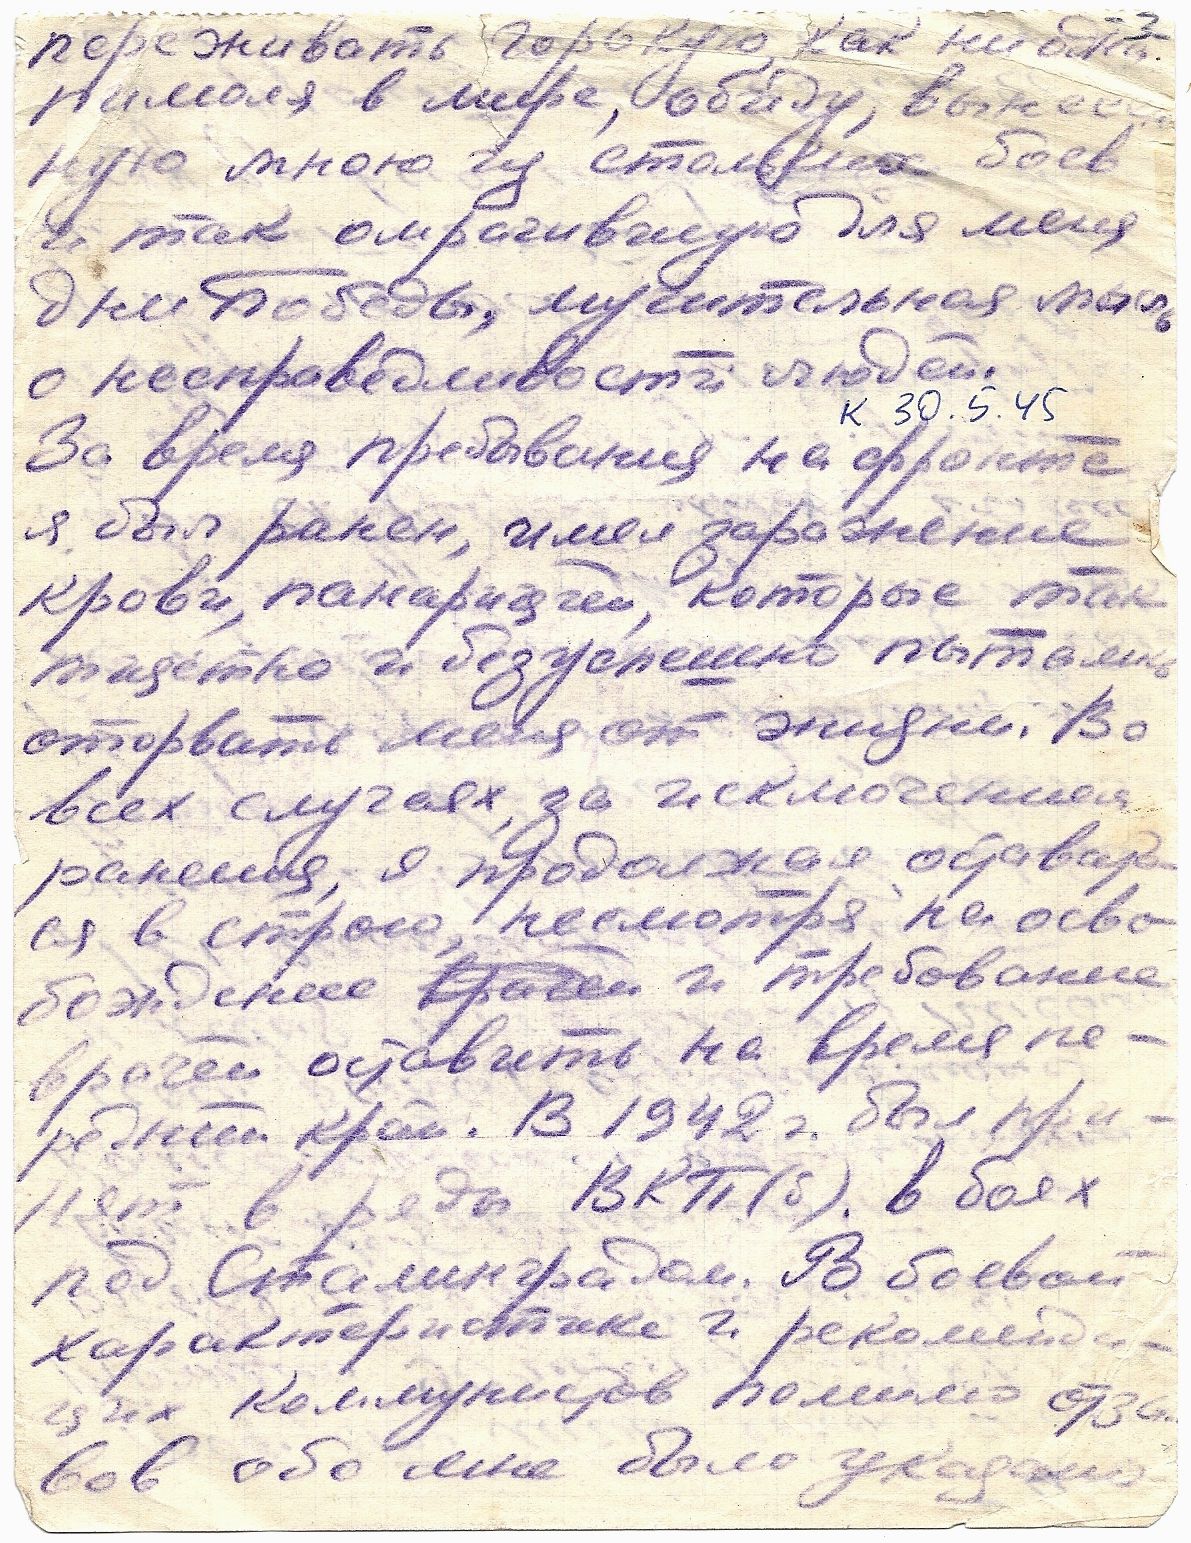 2.
переживать горькую, как ни одна
пилюля в мире, обиду, вынесен-
ную мною из стольких боев
и так омрачившую для меня
дни Победы, мучительная мысль
о несправедливости людей.
к 30.5.45
За время пребывания на фронте
я был ранен, имел заражение
крови, панариций, которые так
тщетно и безуспешно пытались
оторвать меня от жизни. Во
всех случаях, за исключением
ранения, я продолжал оставать
ся в строю, несмотря на осво-
бождение врачей и требование
врачей оставить на время пе-
редний край. В 1942 г. был при-
нят в ряды ВКП(б). в боях
под Сталинградом. В боевой
характеристике и рекоменда-
циях коммунистов помимо отзы-
вов обо мне было указано